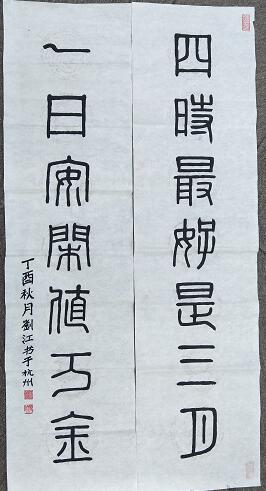 四時最好是三月
一日安閑值万金
丁酉秋月劉江书于杭州